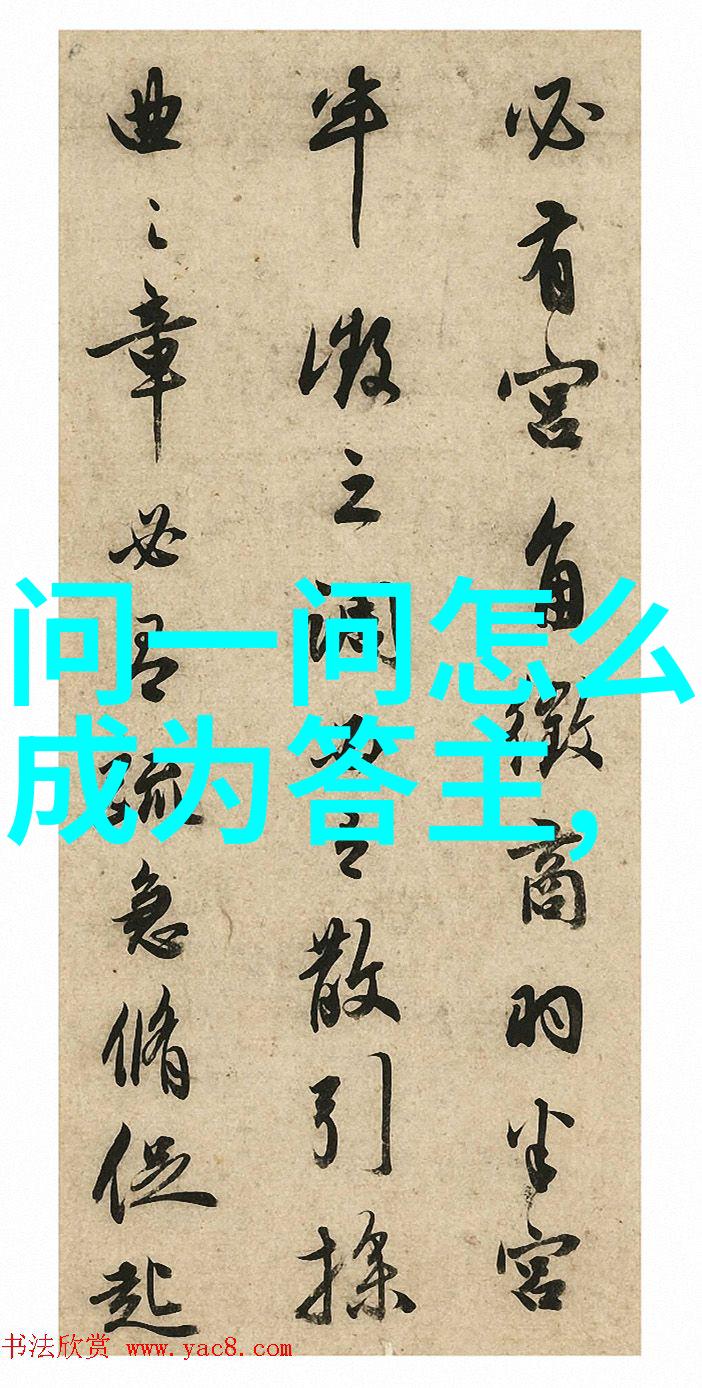 必有宮角徵商羽半宮
半徵之調之散引操
曲之章必有疏急脩促起
问一问怎么
成为答主,
书法欣赏 www.yac8.com